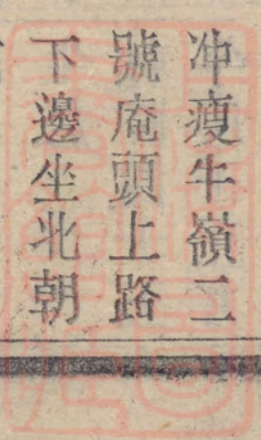 冲瘦牛嶺二
號庵頭上路
下邊坐北朝